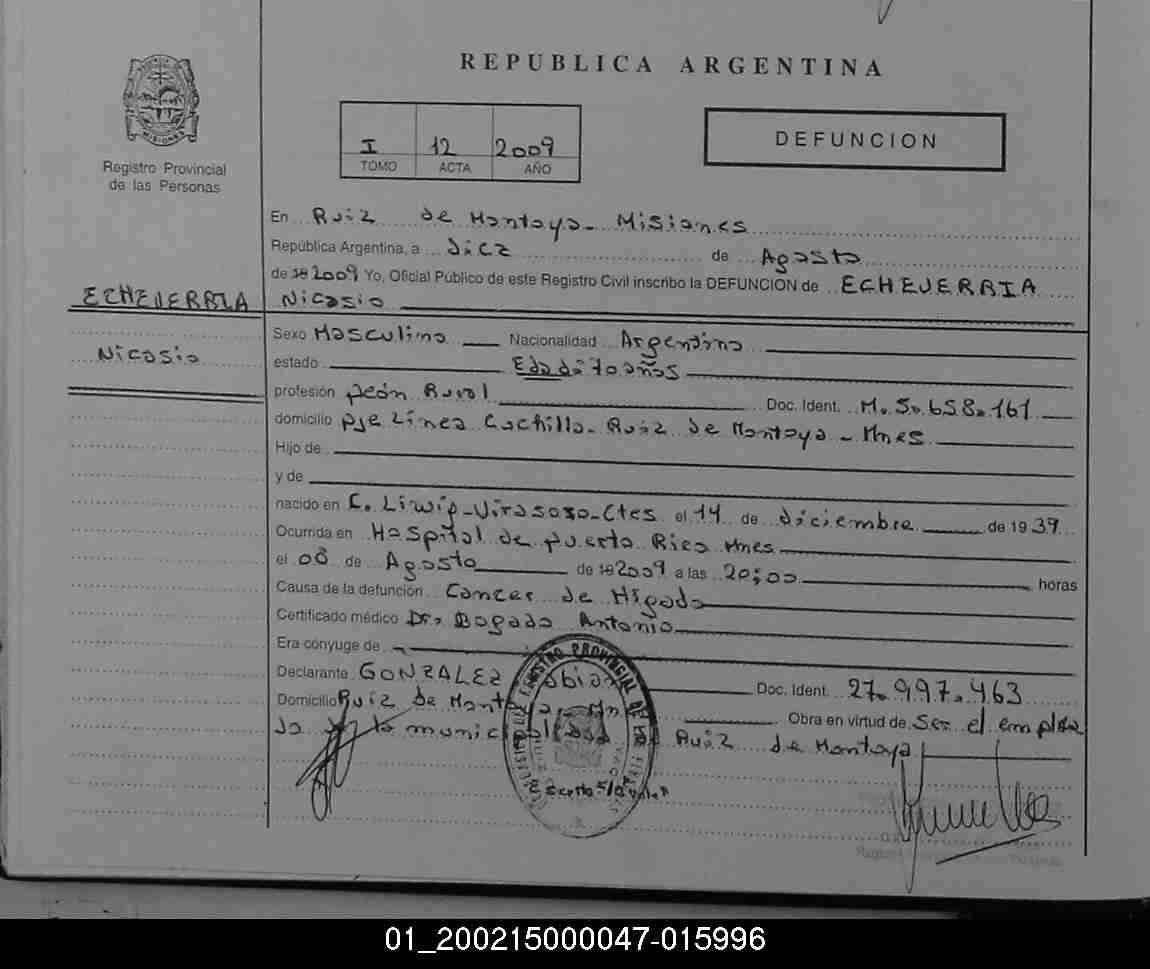 REPUBLICA ARGENTINA
MISIONES
Registro Provincial
de las Personas
I 12 2009
TOMO ACTA AÑO
DEFUNCION
En Ruiz de Montoya - Misiones
República Argentina, a diez de Agosto
de 2009 Yo, Oficial Público de este Registro Civil inscribo la DEFUNCION de ECHEVERRIA
Nicasio
ECHEVERRIA
Nicasio
Sexo Masculino Nacionalidad Argentino
estado Edad: 70 años
profesión peón Rural Doc. Ident. M. 5.658.161
domicilio pje Línea Cuchilla - Ruiz de Montoya - Mnes
Hijo de
y de
nacido en C. - Virasoro - Ctes el 14 de diciembre de 1939
Ocurrida en Hospital de puerto Rico Mnes
el 08 de Agosto de 2009 a las 20:00 horas
Causa de la defunción Cancer de Higado
Certificado médico Dr. Bogado Antonio
Era cónyuge de
Declarante GONZALEZ Doc. Ident. 27.997.463
Domicilio Ruiz de Obra en virtud de Ser el emplea
do de la municipalidad Ruiz de Montoya
REGISTRO PROVINCIAL DE LAS
01_200215000047-015996